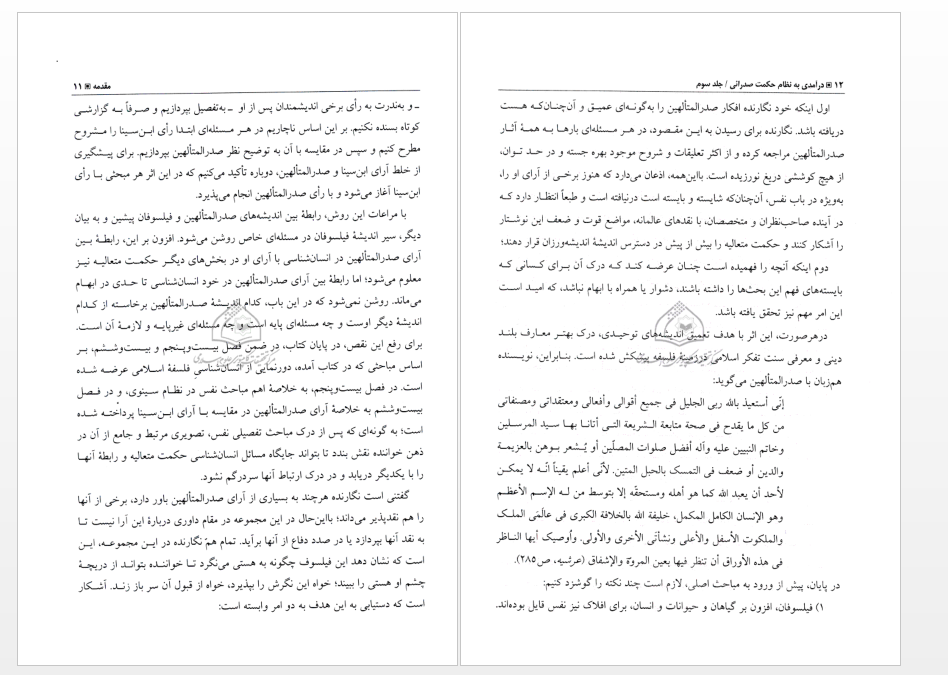 مقدمه ▣ ۱۱
ـ و به‌ندرت به رأی برخی اندیشمندان پس از او ـ به‌تفصیل بپردازیم و صرفاً به گزارشی
کوتاه بسنده نکنیم. بر این اساس ناچاریم در هر مسئله‌ای ابتدا رأی ابن‌سینا را مشروح
مطرح کنیم و سپس در مقایسه با آن به توضیح نظر صدرالمتألهین بپردازیم. برای پیشگیری
از خلط آرای ابن‌سینا و صدرالمتألهین، دوباره تأکید می‌کنیم که در این اثر هر مبحثی با رأی
ابن‌سینا آغاز می‌شود و با رأی صدرالمتألهین انجام می‌پذیرد.
با مراعات این روش، رابطهٔ بین اندیشه‌های صدرالمتألهین و فیلسوفان پیشین و به بیان
دیگر، سیر اندیشهٔ فیلسوفان در مسئله‌ای خاص روشن می‌شود. افزون بر این، رابطهٔ بین
آرای صدرالمتألهین در انسان‌شناسی با آرای او در بخش‌های دیگر حکمت متعالیه نیز
معلوم می‌شود؛ اما رابطهٔ بین آرای صدرالمتألهین در خود انسان‌شناسی تا حدی در ابهام
می‌ماند. روشن نمی‌شود که در این باب، کدام اندیشهٔ صدرالمتألهین برخاسته از کدام
اندیشهٔ دیگر اوست و چه مسئله‌ای پایه است و چه مسئله‌ای غیرپایه و لازمهٔ آن است.
برای رفع این نقص، در پایان کتاب، در ضمن فصل بیست‌وپنجم و بیست‌وششم، بر
اساس مباحثی که در کتاب آمده، دورنمایی از انسان‌شناسی فلسفهٔ اسلامی عرضه شده
است. در فصل بیست‌وپنجم، به خلاصهٔ اهم مباحث نفس در نظام سینوی، و در فصل
بیست‌وششم به خلاصهٔ آرای صدرالمتألهین در مقایسه با آرای ابن‌سینا پرداخته شده
است؛ به گونه‌ای که پس از درک مباحث تفصیلی نفس، تصویری مرتبط و جامع از آن در
ذهن خواننده نقش بندد تا بتواند جایگاه مسائل انسان‌شناسی حکمت متعالیه و رابطهٔ آنها
را با یکدیگر دریابد و در درک ارتباط آنها سردرگم نشود.
گفتنی است نگارنده هرچند به بسیاری از آرای صدرالمتألهین باور دارد، برخی از آنها
را هم نقدپذیر می‌داند؛ بااین‌حال در این مجموعه در مقام داوری دربارهٔ این آرا نیست تا
به نقد آنها بپردازد یا در صدد دفاع از آنها برآید. تمام همّ نگارنده در این مجموعه، این
است که نشان دهد این فیلسوف چگونه به هستی می‌نگرد تا خواننده بتواند از دریچهٔ
چشم او هستی را ببیند؛ خواه این نگرش را بپذیرد، خواه از قبول آن سر باز زند. آشکار
است که دستیابی به این هدف به دو امر وابسته است:
۱۲ ▣ درآمدی به نظام حکمت صدرائی / جلد سوم
اول اینکه خود نگارنده افکار صدرالمتألهین را به‌گونه‌ای عمیق و آن‌چنان‌که هست
دریافته باشد. نگارنده برای رسیدن به این مقصود، در هر مسئله‌ای بارها به همهٔ آثار
صدرالمتألهین مراجعه کرده و از اکثر تعلیقات و شروح موجود بهره جسته و در حد توان،
از هیچ کوششی دریغ نورزیده است. بااین‌همه، اذعان می‌دارد که هنوز برخی از آرای او را،
به‌ویژه در باب نفس، آن‌چنان‌که شایسته و بایسته است درنیافته است و طبعاً انتظار دارد که
در آینده صاحب‌نظران و متخصصان، با نقدهای عالمانه، مواضع قوت و ضعف این نوشتار
را آشکار کنند و حکمت متعالیه را بیش از پیش در دسترس اندیشهٔ اندیشه‌ورزان قرار دهند؛
دوم اینکه آنچه را فهمیده است چنان عرضه کند که درک آن برای کسانی که
بایسته‌های فهم این بحث‌ها را داشته باشند، دشوار یا همراه با ابهام نباشد، که امید است
این امر مهم نیز تحقق یافته باشد.
درهرصورت، این اثر با هدف تعمیق اندیشه‌های توحیدی، درک بهتر معارف بلند
دینی و معرفی سنت تفکر اسلامی درزمینهٔ فلسفه پیشکش شده است. بنابراین، نویسنده
هم‌زبان با صدرالمتألهین می‌گوید:
إنّی أستعیذ بالله ربی الجلیل فی جمیع أقوالی وأفعالی ومعتقداتی ومصنفاتی
من کل ما یقدح فی صحة متابعة الشریعة التی أتانا بها سید المرسلین
وخاتم النبیین علیه وآله أفضل صلوات المصلّین أو یُشعر بوهن بالعزیمة
والدین أو ضعف فی التمسک بالحبل المتین. لأنّی أعلم یقیناً أنّه لا یمکن
لأحد أن یعبد الله کما هو أهله ومستحقّه إلا بتوسط من له الإسم الأعظم
وهو الإنسان الکامل المکمل، خلیفة الله بالخلافة الکبری فی عالَمَی الملک
والملکوت الأسفل والأعلی ونشأتَی الأخری والأولی. وأوصیک أیها الناظر
فی هذه الأوراق أن تنظر فیها بعین المروّة والإشفاق (عرشیه، ص۲۸۵).
در پایان، پیش از ورود به مباحث اصلی، لازم است چند نکته را گوشزد کنیم:
۱) فیلسوفان، افزون بر گیاهان و حیوانات و انسان، برای افلاک نیز نفس قایل بوده‌اند.